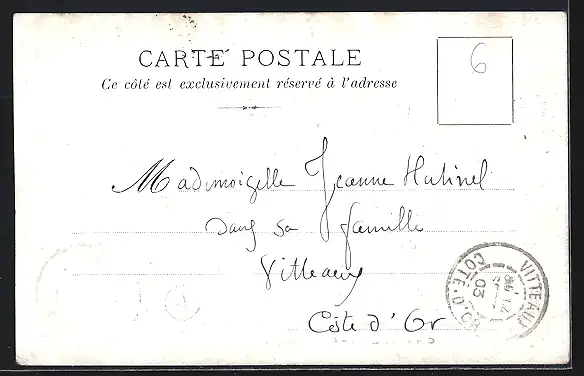 CARTE POSTALE
Ce côté est exclusivement réservé à l'adresse
6
Mademoiselle Jeanne Hutinel
Dans sa famille
Vitteaux
Côte d'Or
VITTEAUX
03
CÔTE-D'OR